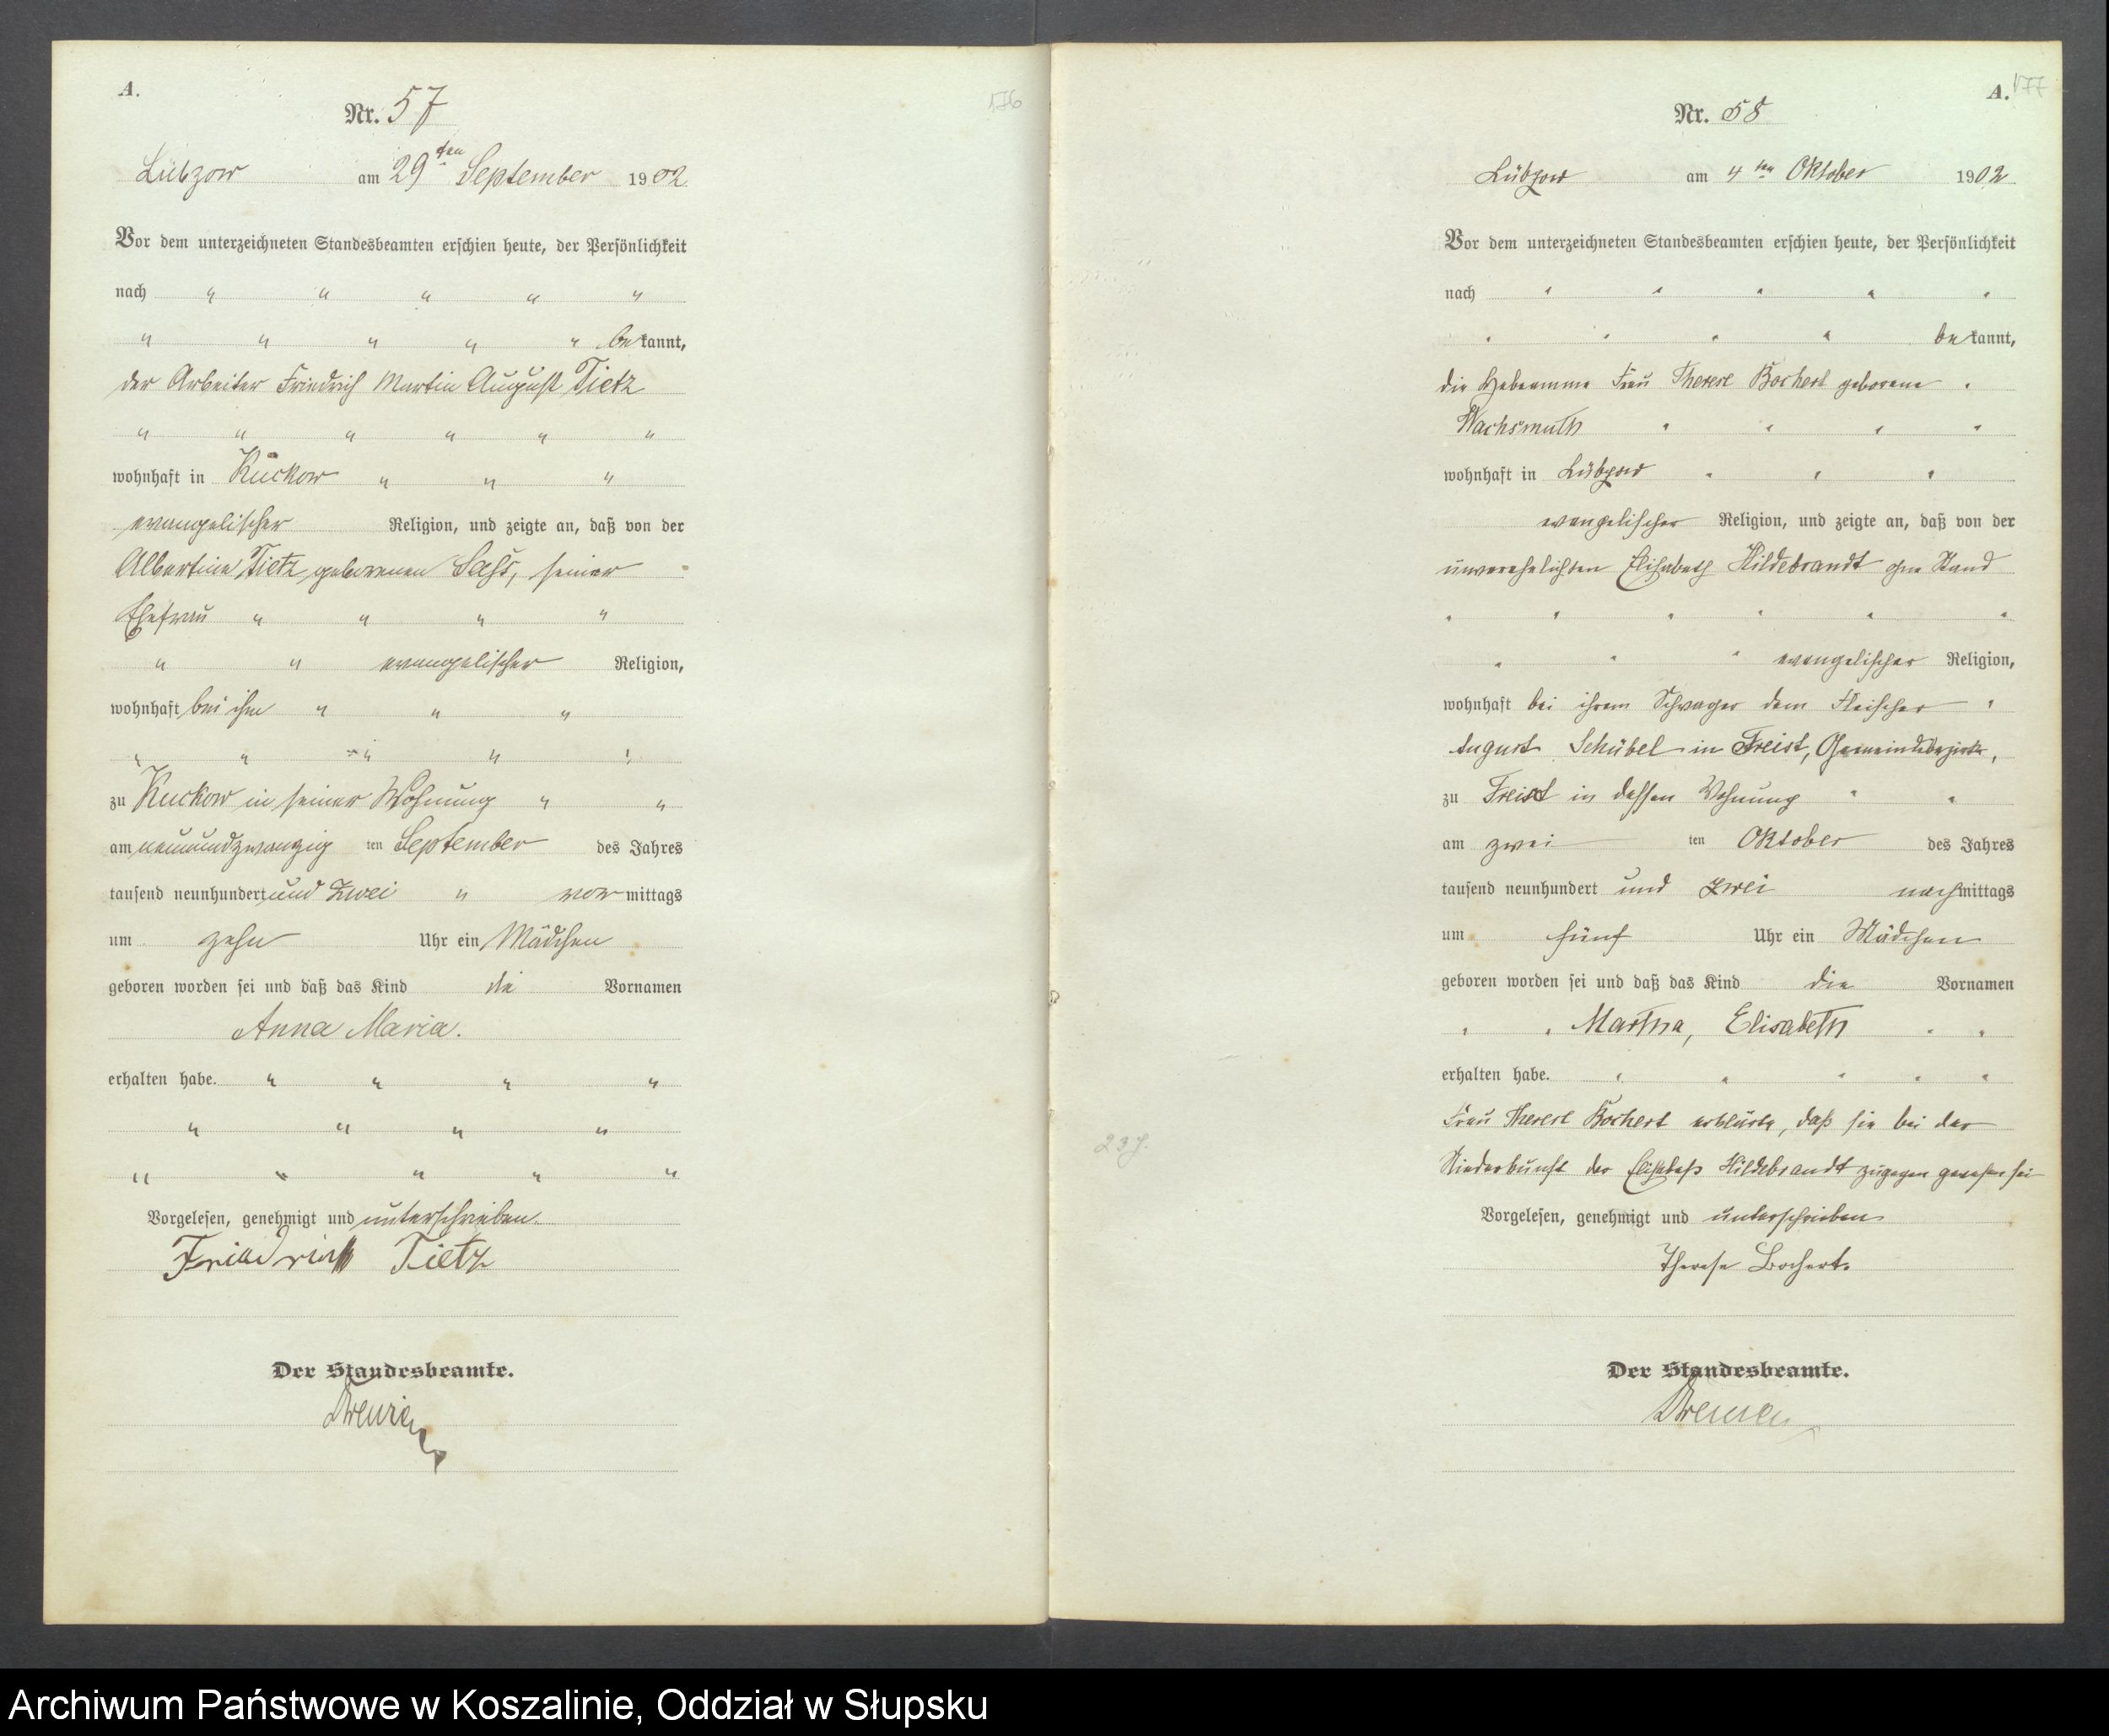 A.
176
Nr. 57
Lübzow am 29ten September 1902
Vor dem unterzeichneten Standesbeamten erschien heute, der Persönlichkeit
nach " " " " "
" " " " " bekannt,
der Arbeiter Friedrich Martin August Tietz
" " " " " "
wohnhaft in Kuckow " " "
evangelischer Religion, und zeigte an, daß von der
Albertine Tietz geborenen Saß, seiner
Ehefrau " " " "
" " evangelischer Religion,
wohnhaft bei ihm " " "
" " " " "
zu Kuckow in seiner Wohnung " "
am neunundzwanzig ten September des Jahres
tausend neunhundert und zwei " vormittags
um zehn Uhr ein Mädchen
geboren worden sei und daß das Kind die Vornamen
Anna Maria.
erhalten habe. " " " "
" " " "
" " " " "
Vorgelesen, genehmigt und unterschrieben.
Friedrich Tietz
Der Standesbeamte.
A. 177
Nr. 58
Lübzow am 4ten Oktober 1902
Vor dem unterzeichneten Standesbeamten erschien heute, der Persönlichkeit
nach " " " " "
" " " " bekannt,
die Hebeamme Frau Therese Bochert geborene "
Wachsmuth " " " "
wohnhaft in Lübzow " " "
evangelischer Religion, und zeigte an, daß von der
unverehelichten Elisabeth Hildebrandt ohne Stand
" " " " " "
" " " evangelischer Religion,
wohnhaft bei ihrem Schwager dem Fleischer "
August Schübel in Freist, Gemeindebezirk,
zu Freist in dessen Wohnung " "
am zwei ten Oktober des Jahres
tausend neunhundert und zwei nachmittags
um fünf Uhr ein Mädchen
geboren worden sei und daß das Kind die Vornamen
" " Martha, Elisabeth " "
erhalten habe. " " " " "
Frau Therese Bochert erklärte, daß sie bei der
237.
Niederkunft der Elisabeth Hildebrandt zugegen gewesen sei
Vorgelesen, genehmigt und unterschrieben
Therese Bochert.
Der Standesbeamte.
Archiwum Państwowe w Koszalinie, Oddział w Słupsku